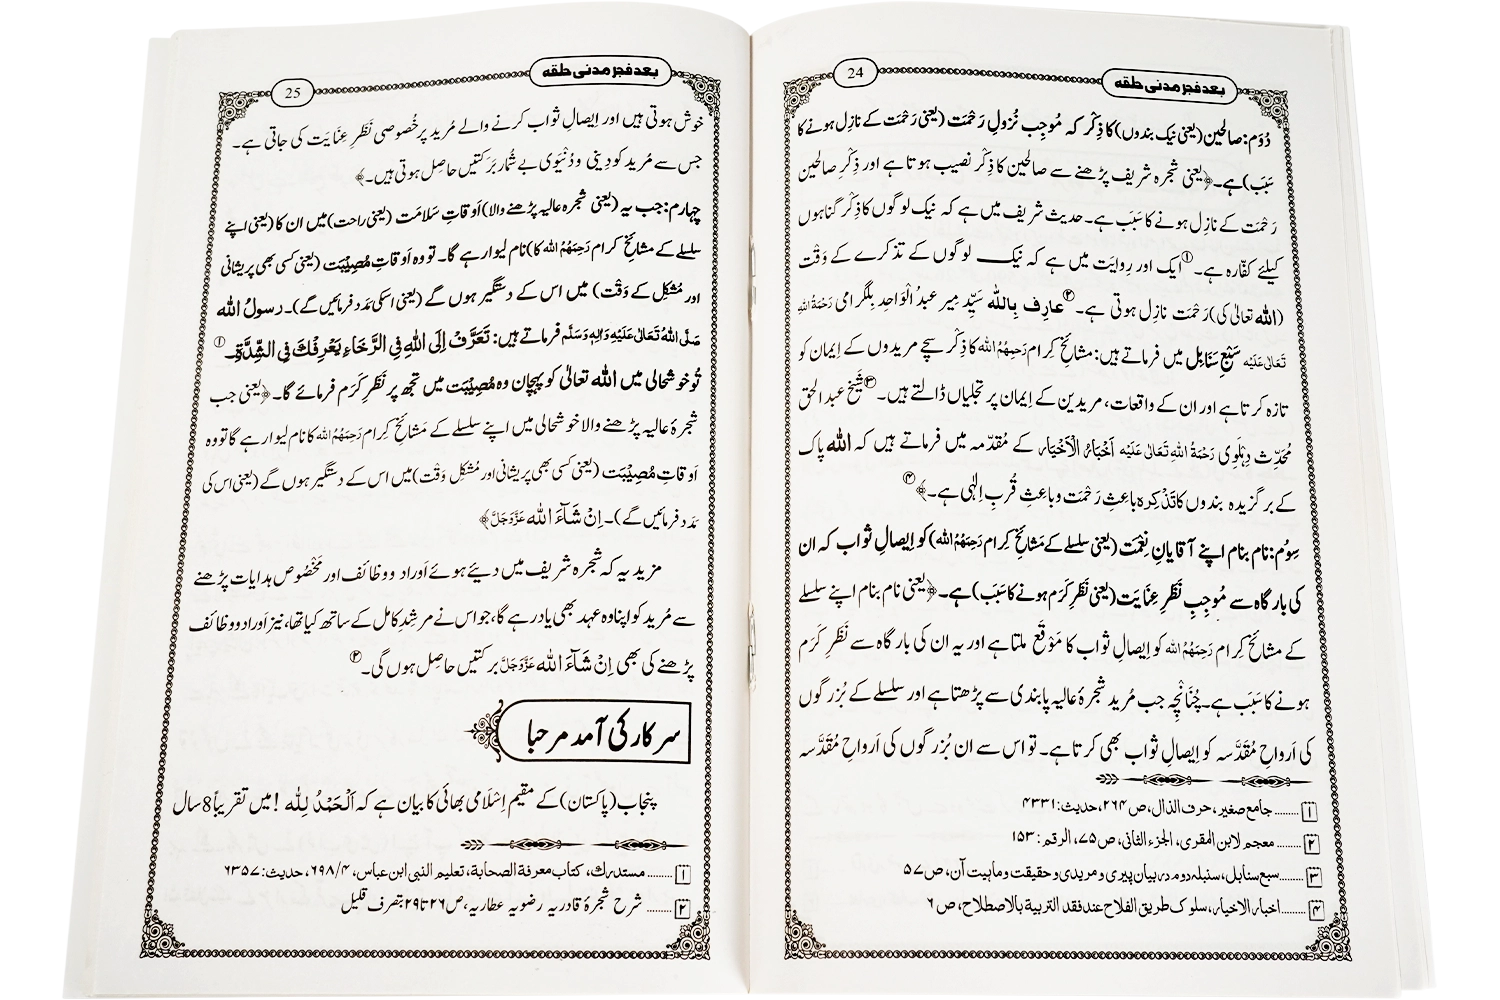 24
بعد فجر مدنی حلقہ
دُوَم: صالحین (یعنی نیک بندوں) کا ذِکْر کہ مُوجِب نُزولِ رَحْمَت (یعنی رَحْمَت کے نازِل ہونے کا
سَبَب) ہے۔ ﴿یعنی شجرہ شریف پڑھنے سے صالحین کا ذِکْر نصیب ہوتا ہے اور ذِکْرِ صالحین
رَحْمَت کے نازِل ہونے کا سَبَب ہے۔ حدیث شریف میں ہے کہ نیک لوگوں کا ذِکْر گناہوں
کیلئے کفّارہ ہے۔①ایک اور رِوایَت میں ہے کہ نیک لوگوں کے تذکرے کے وَقْت
(اللہ تعالیٰ کی) رَحْمَت نازِل ہوتی ہے۔②عارِف بِاللہ سَیِّد میر عبدُ الْوَاحِد بِلگرامی رَحْمَۃُ اللہِ
تَعَالٰی عَلَیْہِ سَبْعِ سَنَابِل میں فرماتے ہیں: مشائخِ کِرام رَحِمَہُمُ اللہ کا ذِکْر سچے مریدوں کے اِیمان کو
تازہ کرتا ہے اور ان کے واقعات، مریدین کے اِیمان پر تجلیاں ڈالتے ہیں۔③شَیْخ عبد الحق
مُحَدِّث دِہْلَوِی رَحْمَۃُ اللہِ تَعَالٰی عَلَیْہِ اَخْبَارُ الْاَخْیَار کے مُقدّمہ میں فرماتے ہیں کہ اللہ پاک
کے برگزیدہ بندوں کا تَذْکِرہ باعِثِ رَحْمَت و باعِثِ قُربِ اِلٰہی ہے۔﴾④
سِوُم: نام بنام اپنے آقایانِ نِعْمَت (یعنی سلسلے کے مَشائخِ کِرام رَحِمَہُمُ اللہ) کو اِیصالِ ثواب کہ ان
کی بارگاہ سے مُوجِبِ نَظَرِ عِنَایَت (یعنی نَظَرِ کَرَم ہونے کا سَبَب) ہے۔ ﴿یعنی نام بنام اپنے سلسلے
کے مشائخِ کِرام رَحِمَہُمُ اللہ کو اِیصالِ ثواب کا مَوْقَع ملتا ہے اور یہ ان کی بارگاہ سے نَظَرِ کَرَم
ہونے کا سَبَب ہے۔ چُنَانْچِہ جب مُرید شجرۂ عالیہ پابندی سے پڑھتا ہے اور سلسلے کے بُزرگوں
کی اَرواحِ مُقَدَّسہ کو اِیصالِ ثواب بھی کرتا ہے۔ تو اس سے ان بُزرگوں کی اَرواحِ مُقَدَّسہ
۱ ........ جامع صغیر، حرف الذال، ص۲۶۴، حدیث: ۴۳۳۱
۲ ........ معجم لابن المقری، الجزء الثانی، ص۷۵، الرقم: ۱۵۳
۳ ........ سبع سنابل، سنبلہ دوم در بیان پیری و مریدی و حقیقت و ماہیت آن، ص۵۷
۴ ........ اخبار الاخیار، سلوک طریق الفلاح عند فقد التربیة بالاصطلاح، ص۶
بعد فجر مدنی حلقہ
25
خوش ہوتی ہیں اور اِیصالِ ثواب کرنے والے مُرید پر خُصوصی نَظَرِ عِنَایَت کی جاتی ہے۔
جس سے مُرید کو دِینی و دُنْیَوی بے شُمار بَرَکتیں حاصِل ہوتی ہیں۔﴾
چہارم: جب یہ (یعنی شجرہ عالیہ پڑھنے والا) اَوقاتِ سَلَامَت (یعنی راحت) میں ان کا (یعنی اپنے
سلسلے کے مشائخِ کرام رَحِمَہُمُ اللہ کا) نام لیوا رہے گا۔ تو وہ اَوقاتِ مُصِیْبَت (یعنی کسی بھی پریشانی
اور مُشکِل کے وَقْت) میں اس کے دستگیر ہوں گے (یعنی اسکی مَدَد فرمائیں گے)۔ رسولُ اللہ
صَلَّی اللہُ تَعَالٰی عَلَیْہِ وَاٰلِہٖ وَسَلَّم فرماتے ہیں: تَعَرَّفْ اِلَی اللہِ فِی الرَّخَاءِ یَعْرِفْکَ فِی الشِّدَّةِ۔①
تُو خوشحالی میں اللہ تعالیٰ کو پہچان وہ مُصِیْبَت میں تجھ پر نَظَرِ کَرَم فرمائے گا۔ ﴿یعنی جب
شجرۂ عالیہ پڑھنے والا خوشحالی میں اپنے سلسلے کے مَشائخِ کِرام رَحِمَہُمُ اللہ کا نام لیوا رہے گا تو وہ
اَوقاتِ مُصِیْبَت (یعنی کسی بھی پریشانی اور مُشکِل وَقْت) میں اس کے دستگیر ہوں گے (یعنی اس کی
مَدَد فرمائیں گے)۔ اِنْ شَآءَ اللہ عَزَّوَجَلَّ﴾
مزید یہ کہ شجرہ شریف میں دیئے ہوئے اَوراد و وظائف اور مَخْصُوص ہدایات پڑھنے
سے مُرید کو اپنا وہ عہد بھی یاد رہے گا، جو اس نے مرشدِ کامل کے ساتھ کیا تھا، نیز اَوراد و وظائف
پڑھنے کی بھی اِنْ شَآءَ اللہ عَزَّوَجَلَّ برکتیں حاصِل ہوں گی۔②
سرکار کی آمد مرحبا
پنجاب (پاکستان) کے مقیم اِسْلَامی بھائی کا بیان ہے کہ اَلْحَمْدُ لِلّٰہ! میں تقریباً 8 سال
۱ ........ مستدرک، کتاب معرفة الصحابة، تعلیم النبی ابن عباس، ۴/ ۶۹۸، حدیث: ۶۳۵۷
۲ ........ شرح شجرۂ قادریہ رضویہ عطاریہ، ص۲۶ تا ۲۹ بتصرف قلیل